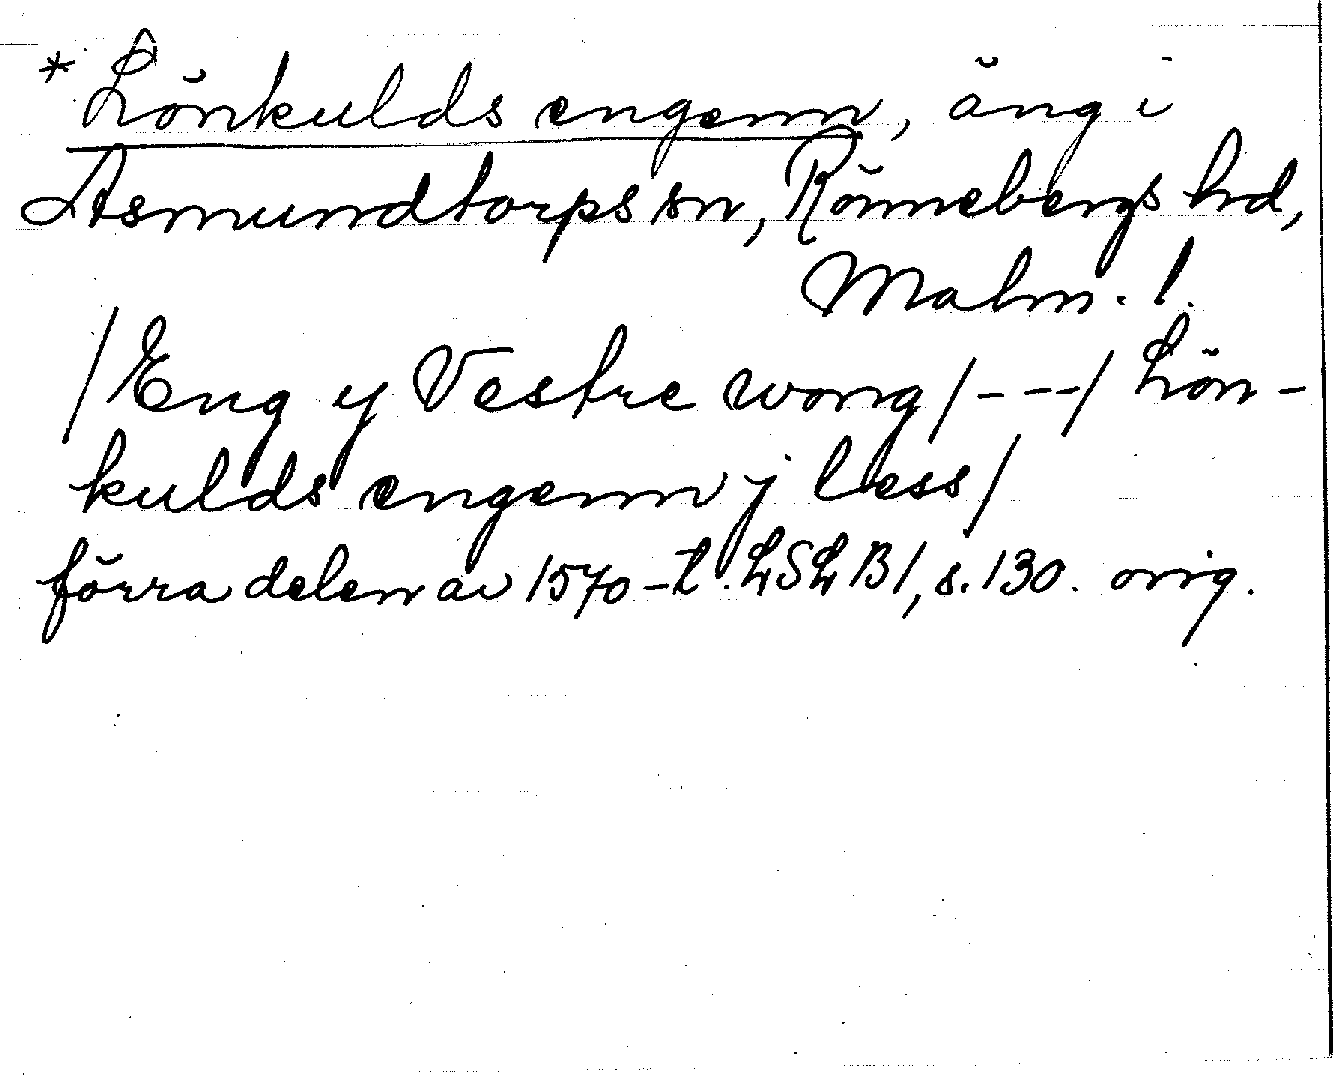 * Lönkulds engenn, äng i
Asmundtorps sn, Rönnebergs hd,
Malm. l.
/Eng y Vestre wong/---/ Lön-
kulds engenn j less/
förra delen av 1570-t. LSLB1, s. 130. orig.